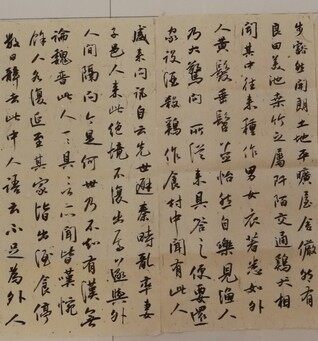 步豁然開朗土地平曠屋舍儼然有
良田美池桑竹之屬阡陌交通鷄犬相
聞其中往來種作男女衣著悉如外
人黃髮垂髫並怡然自樂見漁人
乃大驚問所從來具答之便要還
家設酒殺鷄作食村中聞有此人
咸來問訊自云先世避秦時亂率妻
子邑人來此絕境不復出焉遂與外
人間隔問今是何世乃不知有漢無
論魏晉此人一一具言所聞皆嘆惋
餘人各復延至其家皆出酒食停
數日辭去此中人語云不足為外人